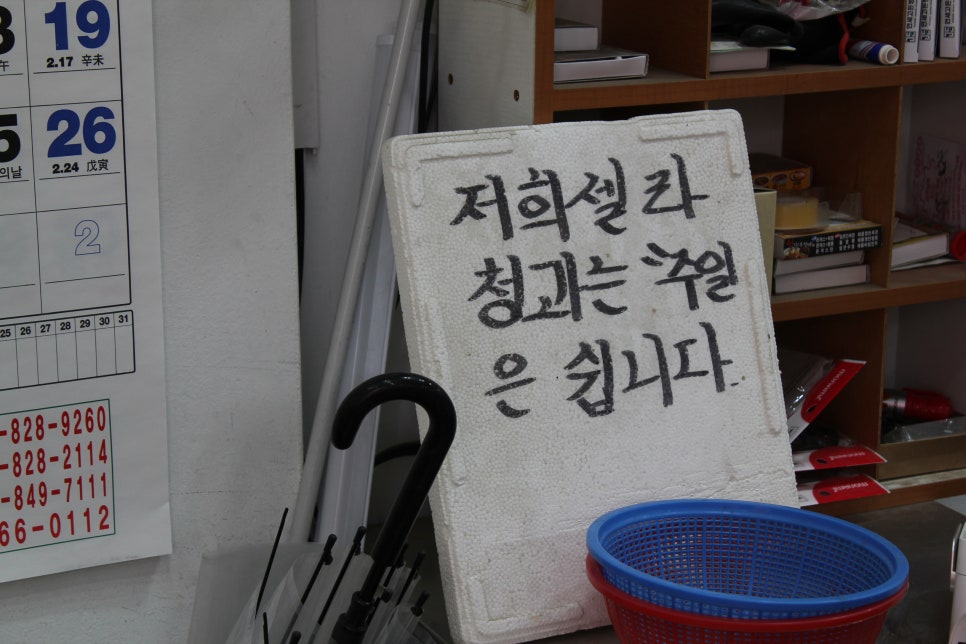 19
2.17 辛未
26
2.24 戊寅
의날
2
25 26 27 28 29 30 31
-828-9260
-828-2114
-849-7111
66-0112
저희셀라
청과는 "주일
은 쉽니다..